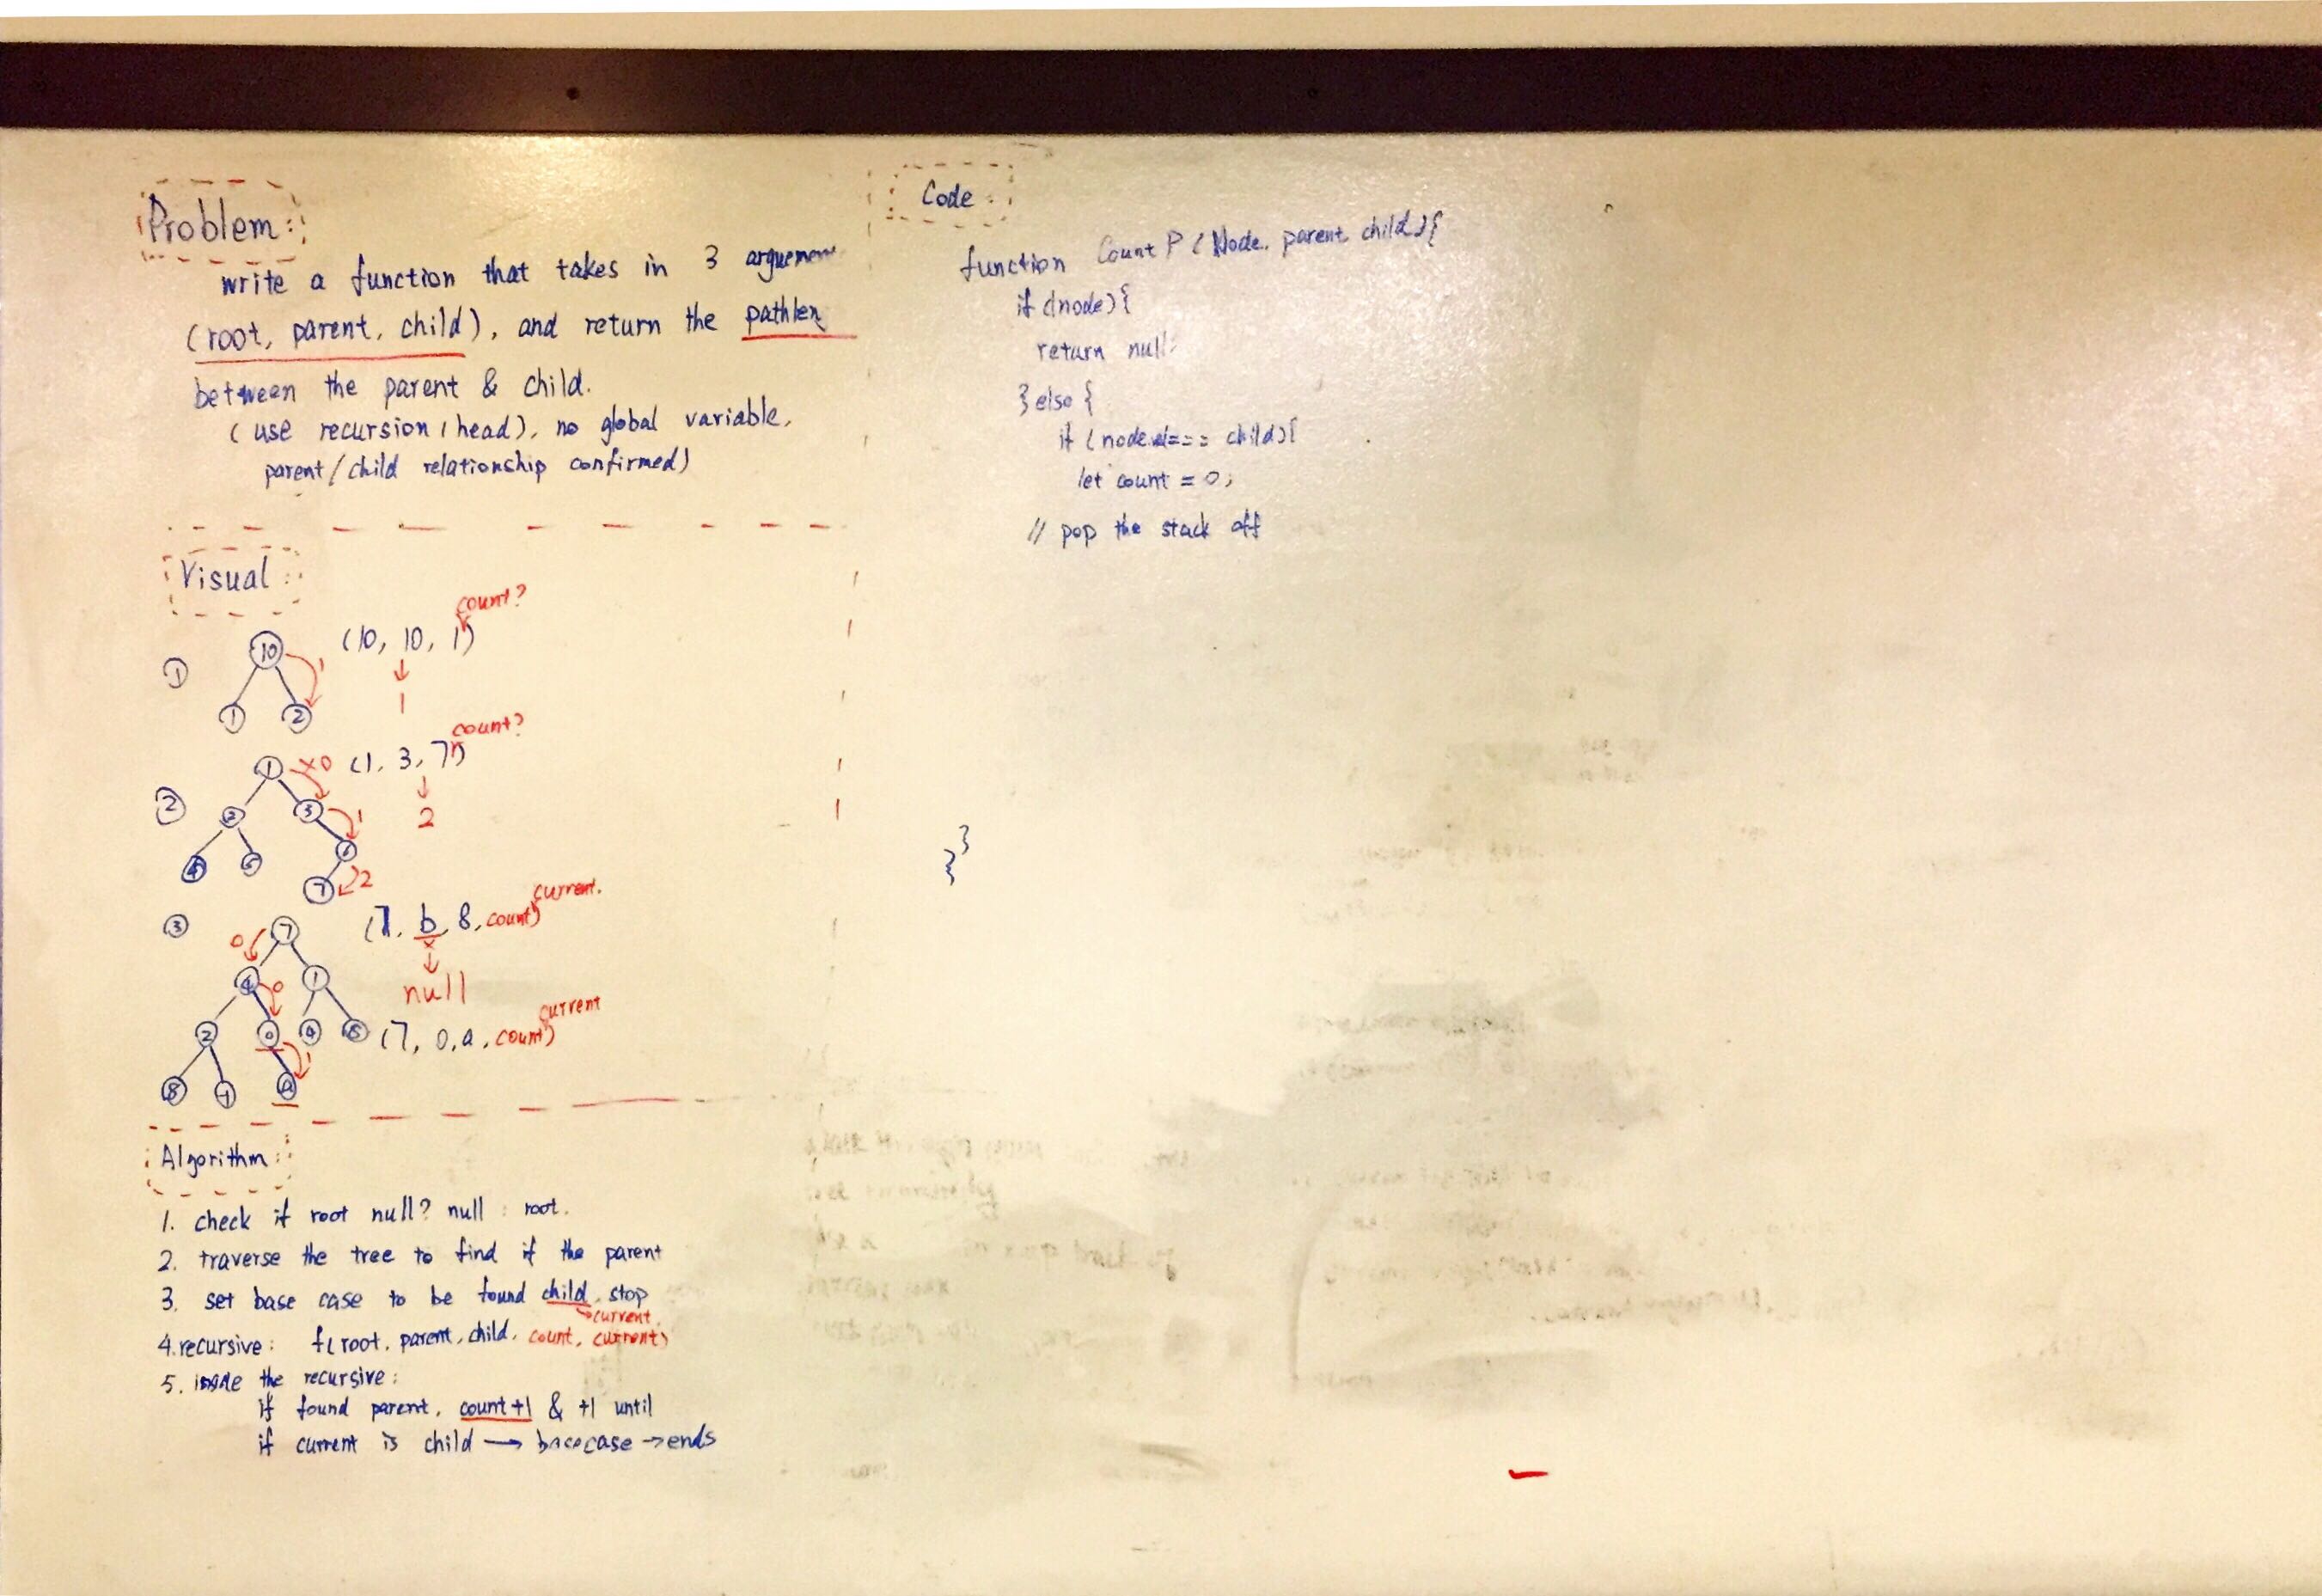 Problem:
write a function that takes in 3 arguement
(root, parent, child), and return the pathlen
between the parent & child.
( use recursion / head), no global variable,
parent/child relationship confirmed)
Visual:
count?
1 10 (10, 10, 1)
1
1
1 2
count?
1 x0 (1, 3, 7)
2 2 3 1
2
4 5 6
7 2
current.
3 7 (7, b, 8, count)
0
4 0 1
null
current
2 0 4 5 (7, 0, a, count)
1
8 1 a
Algorithm:
1. check if root null? null : root.
2. traverse the tree to find if the parent
3. set base case to be found child, stop
current
4. recursive: f(root, parent, child, count, current)
5. inside the recursive:
if found parent, count+1 & +1 until
if current is child → basecase → ends
Code:
function Count P ( Node, parent child ) {
if (!node) {
return null;
} else {
if ( node === child) {
let count = 0;
// pop the stack off
}
}